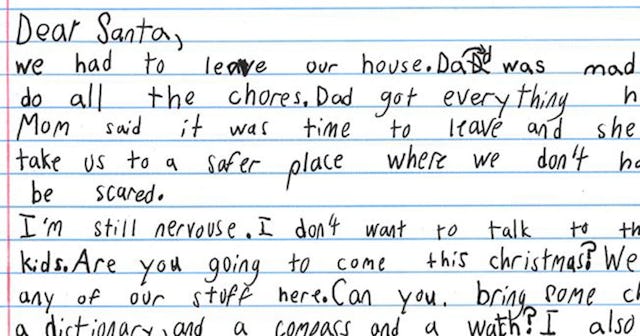 Dear Santa,
we had to leave our house. Dad was mad
do all the chores. Dad got everything
Mom said it was time to leave and she
take us to a safer place where we don't
be scared.
I'm still nervouse. I don't want to talk to
kids. Are you going to come this christmas? We
any of our stuff here. Can you. bring some
a dictionary, and a compass and a watch? I also